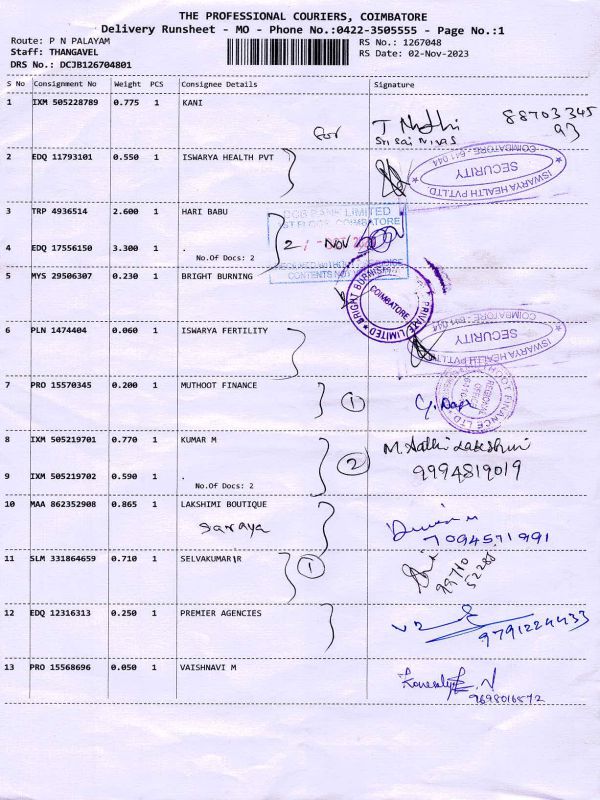 THE PROFESSIONAL COURIERS, COIMBATORE
Delivery Runsheet - MO - Phone No.:0422-3505555 - Page No.:1
Route: P N PALAYAM RS No.: 1267048
Staff: THANGAVEL RS Date: 02-Nov-2023
DRS No.: DCJB126704801
S No Consignment No Weight PCS Consignee Details Signature
1 IXM 505228789 0.775 1 KANI
for
Sri Sai Nivas
88703 345
93
2 EDQ 11793101 0.550 1 ISWARYA HEALTH PVT
ISWARYA HEALTH PVT.LTD.
SECURITY
COIMBATORE - 641 044
3 TRP 4936514 2.600 1 HARI BABU
DCB BANK LIMITED
COIMBATORE
4 EDQ 17556150 3.300 1 .
2 NOV
No.Of Docs: 2
CONTENTS NOT
5 MYS 29506307 0.230 1 BRIGHT BURNING
BRIGHT BURNING PRIVATE LIMITED
COIMBATORE
6 PLN 1474404 0.060 1 ISWARYA FERTILITY
ISWARYA HEALTH PVT.LTD.
SECURITY
COIMBATORE - 641 044
7 PRO 15570345 0.200 1 MUTHOOT FINANCE
1
MUTHOOT FINANCE LTD
REGIONAL OFFICE
8 IXM 505219701 0.770 1 KUMAR M
M. Aathi Lakshmi
2
9994819019
9 IXM 505219702 0.590 1 .
No.Of Docs: 2
10 MAA 862352908 0.865 1 LAKSHIMI BOUTIQUE
Saraya
7094571991
11 SLM 331864659 0.710 1 SELVAKUMAR R
1
99710
52285
12 EDQ 12316313 0.250 1 PREMIER AGENCIES
9791224433
13 PRO 15568696 0.050 1 VAISHNAVI M
9698016572